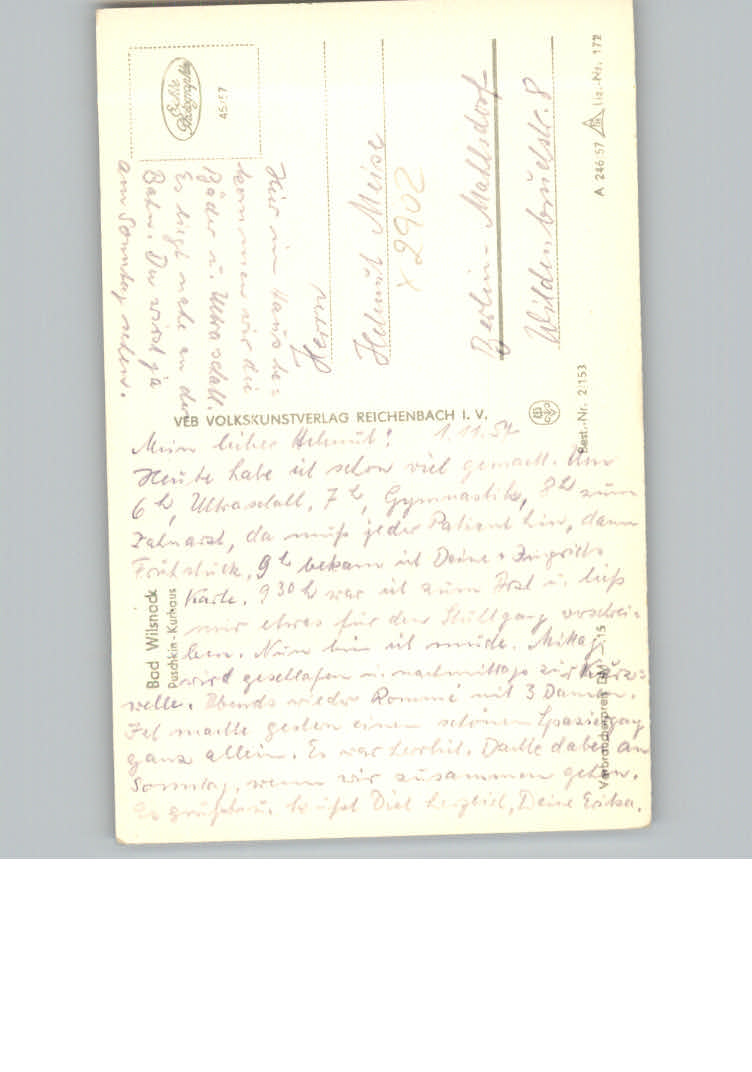 Mein lieber Helmut! 1.11.57
Heute habe ich schon viel gemacht. Um
6 h, Ultraschall, 7 h, Gymnastik, 8 h zum
Zahnarzt, da muß jeder Patient hin, dann
Frühstück, 9 h bekam ich Deine + Ingrids
Karte. 9 30 h war ich zum Arzt u. ließ
mir etwas für den Stuhlgang verschrei-
ben. Nun bin ich müde. Mittag
wird geschlafen u. nachmittags zur Kurz=
welle. Abends wieder Rommé mit 3 Damen.
Ich machte gestern einen schönen Spaziergang
ganz allein. Es war herrlich. Dachte dabei an
Sonntag, wenn wir zusammen gehen.
Es grüßt u. küßt Dich herzlich, Deine Erika.
Hier im Haus be=
kommen wir die
Bäder u. Ultraschall.
Es liegt nahe an der
Bahn. Du wirst ja
am Sonntag sehen.
Herrn
Helmut Meise
x 2902
Berlin-Mahlsdorf
Wildenbruchstr. 8
Echte
Photographie
45/57
VEB VOLKSKUNSTVERLAG REICHENBACH I. V.
Bad Wilsnack
Puschkin-Kurhaus
A 246/57 Liz.-Nr. 172
Best.-Nr. 2/153
Verbraucherpreis DM –.15